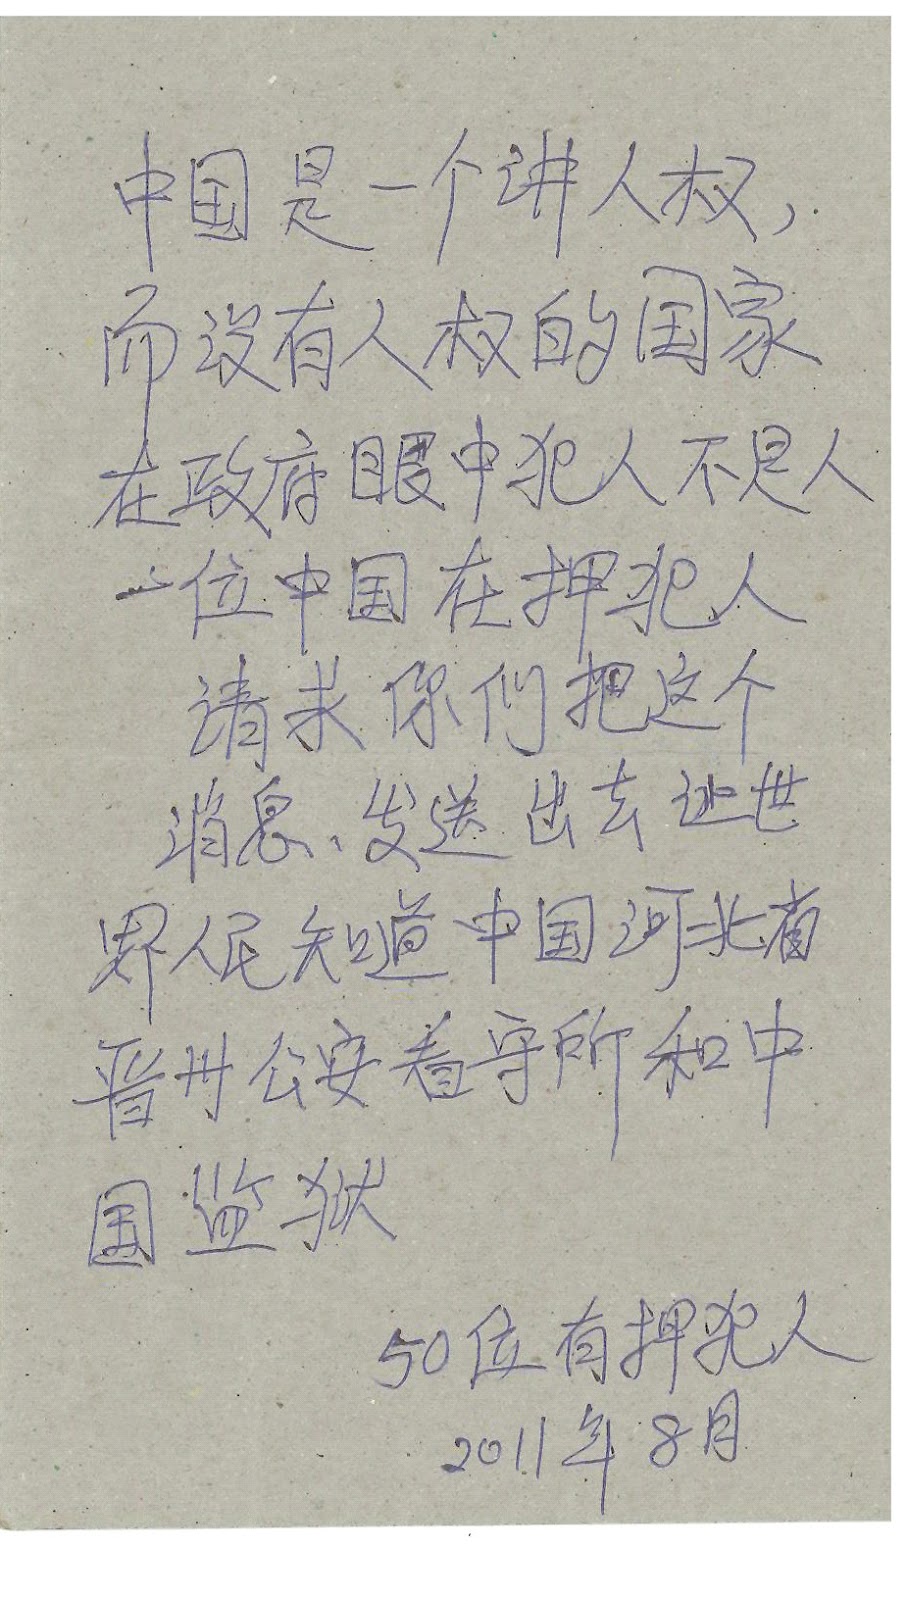 中国是一个讲人权，
而没有人权的国家
在政府眼中犯人不是人
一位中国在押犯人
请求你们把这个
消息、发送出去让世
界人民知道中国河北省
晋州公安看守所和中
国监狱
50位有押犯人
2011年8月